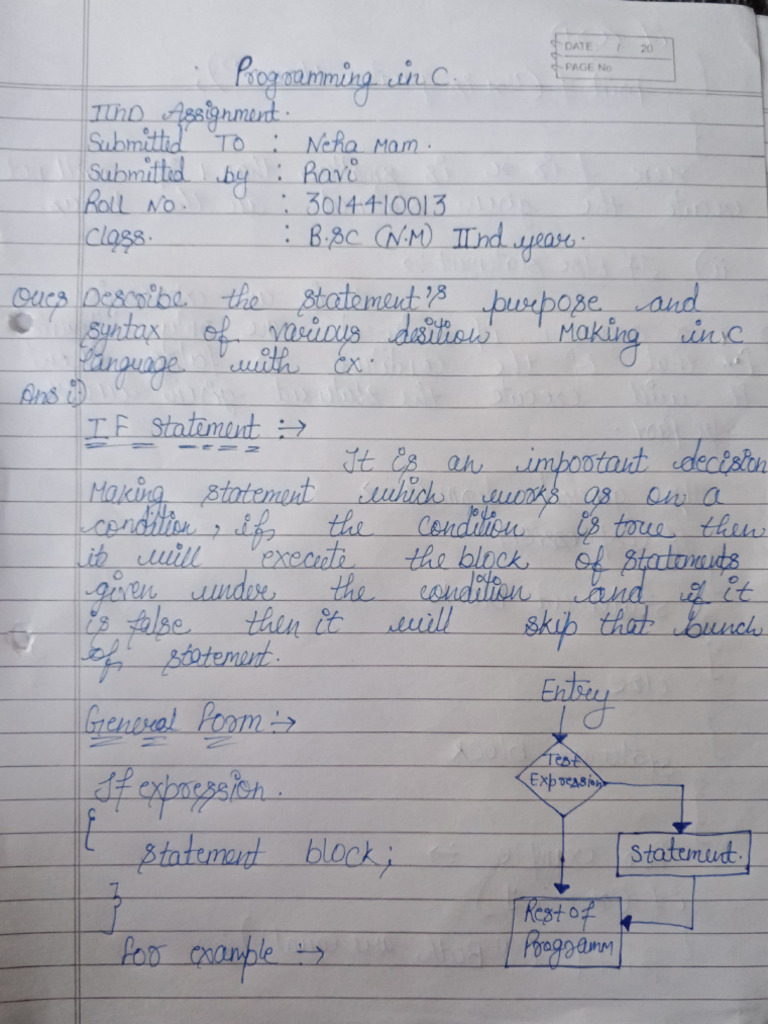 DATE / 20
PAGE No
Programming in C.
IInD Assignment.
Submitted To : Neha Mam.
Submitted by : Ravi
Roll No. : 3014410013
Class. : B.SC (N.M) IInd year.
Ques Describe the statement's purpose and
syntax of various desition Making in C
language with ex.
Ans i)
IF Statement :→
It is an important decision
Making statement which works as on a
condition, if the condition is true then
it will execute the block of statements
given under the condition and if it
is false then it will skip that bunch
of statement.
General Form :→
If expression.
{
statement block;
}
for example :→
Entry
Test
Expression
Statement.
Rest of
Programm